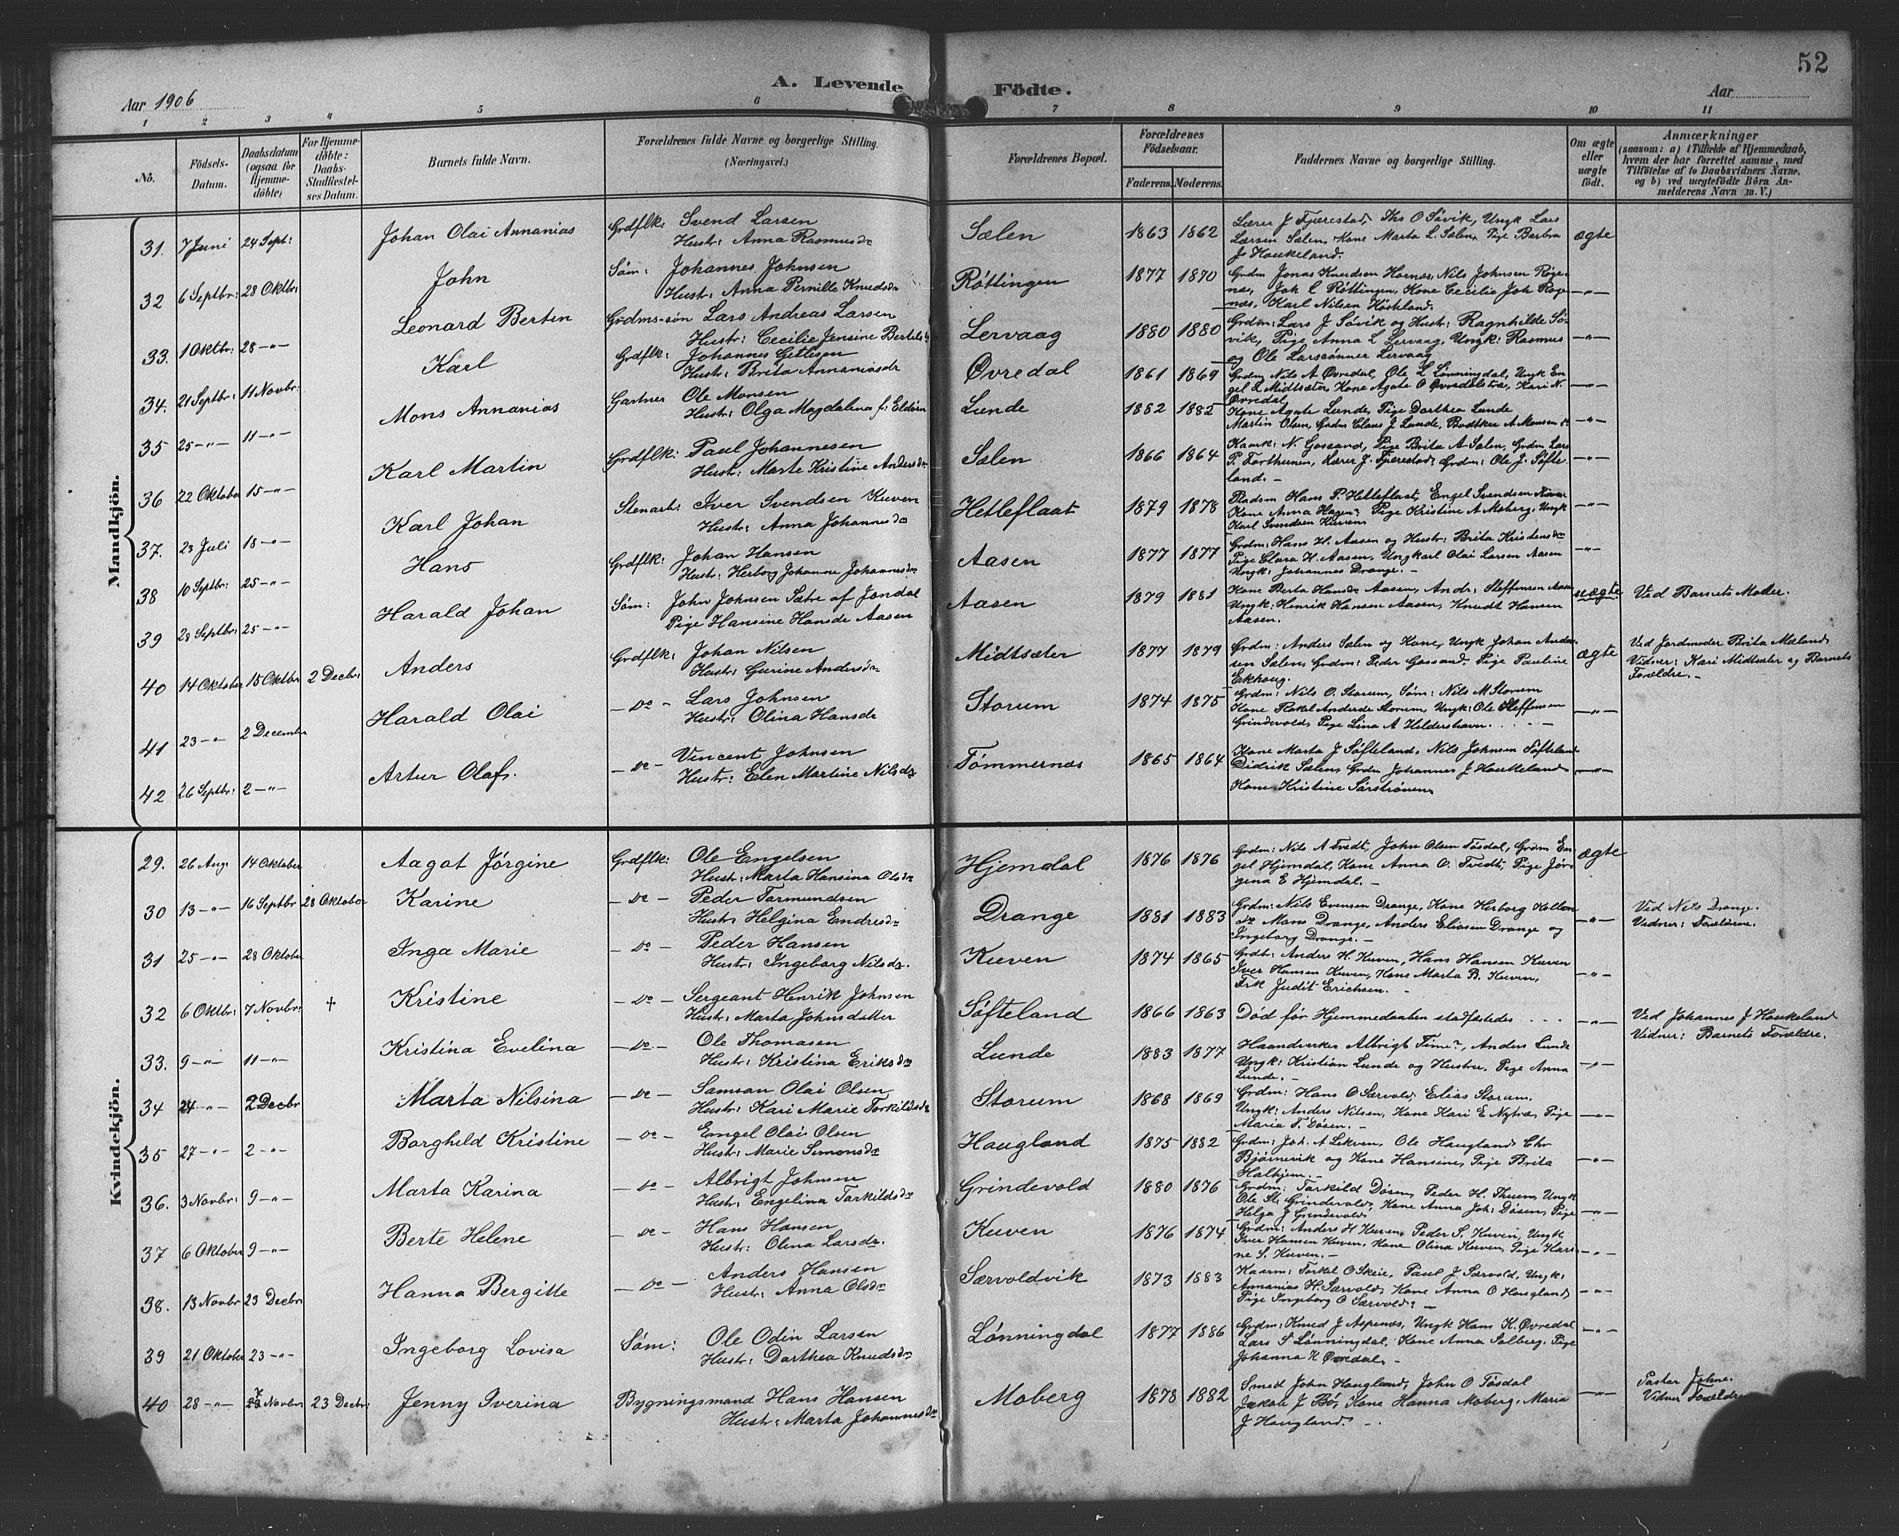 52
A. Levende Födte.
Aar 1906
Aar
1 2 3 4 5 6 7 8 9 10 11
No.
Födsels-Datum.
Daabsdatum (ogsaa for Hjemmedöbte)
For Hjemmedöbte: Daabs-Stadfæstelses Datum.
Barnets fulde Navn.
Forældrenes fulde Navne og borgerlige Stilling. (Næringsvei.)
Forældrenes Bopæl.
Forældrenes Födselsaar.
Faderens. Moderens.
Faddernes Navne og borgerlige Stilling.
Om ægte eller uægte födt.
Anmærkninger
(saasom: a) i Tilfælde af Hjemmedaab, hvem der har forrettet samme, med Tilföielse af to Daabsvidners Navne, og b) ved uægtefödte Börn Anmelderens Navn m. V.)
Mandkjön.
31. 7 Juni 24 Sept: Johan Olai Annanias Grdflk: Svend Larsen
Hustr: Anna Rasmusdr Sælen 1863 1862 Lærer J Fjerestad, Ths O Søvik, Ungk Lars
Larsen Sælen, Kone Marta L. Sælen, Pige Barbra
J. Haukeland. ægte
32 6 Septbr: 28 Oktbr: John Søm: Johannes Johnsen
Hustr: Anna Pernille Knudsdr Røttingen 1877 1870 Grdm Jonas Knudsen Hornæs, Nils Johnsen Røgenæs, Joh L Røttingen, Kone Cecilia Joh Røgenæs, Karl Nilsen Høskland. -"-
33. 1 Oktbr: 28 -"- Leonard Bertin Grdms-søn Lars Andreas Larsen
Hustr: Cecilie Jensine Bertels Lervaag 1880 1880 Grdm: Lars J Søvik og Hustr: Ragnhilde Søvik, Pige Anna L Lervaag, Ungk: Rasmus
og Ole Larssønner Lervaag -"-
34. 21 Septbr: 11 Novbr: Karl Grdflk: Johannes Getlesen
Hustr: Brita Annaniasdr Øvredal 1861 1869 Grdm Nils A Øvredal, Ole L Lønningdal, Ungk Engel R Midtsæter, Kone Agate O Øvredal, Kari N.
Øvredal -"-
35 25 -"- 11 -"- Mons Annanias Gartner Ole Monsen
Hustr: Olga Magdalena f: Eldren Lunde 1882 1882 Kone Agate Lunde, Pige Darthea Lunde
Martin Olsen, Grdm Claus J Lunde, Bødtker A Monsen -"-
36 22 Oktober 15 -"- Karl Martin Grdflk: Paul Johannesen
Hustr: Marte Kristine Andersdr Sælen 1866 1864 N. Gossand, Pige Brita A Sælen, Grdm Lars
P. Forthunen, Lærer J. Fjerestad, Grdm: Ole J. Søfteland. -"-
37. 23 Juli 18 -"- Karl Johan Stenarb: Iver Svendsen Kuven
Hustr: Anna Johannesdr Hetleflaat 1879 1878 Pladsm Hans P. Hetleflaat, Engel Svendsen
Kone Anna Hagen, Pige Kristine A Moberg, Ungk
Karl Svendsen Kuven -"-
38 10 Septbr: 25 -"- Hans Grdflk: Johan Hansen
Hustr: Herborg Johanne Johannesdr Aasen 1877 1877 Grdm: Hans H. Aasen og Hustr: Brita Kristensdr
Pige Clara H. Aasen, Ungkarl Olai Larsen Aasen
Ungk: Johannes Drange. -"-
39 28 Septbr: 25 -"- Harald Johan Søm: John Johnsen Sætre af Jondal
Pige Hansine Hansdr Aasen Aasen 1879 1881 Kone Berta Hansdr Aasen, Andr: Steffensen Aasen
Ungk: Henrik Hansen Aasen, Knudt Hansen
Aasen. uægte Ved Barnets Moder.
40 14 Oktober 15 Oktbr 2 Decbr: Anders Grdflk: Johan Nilsen
Hustr: Gurine Andersdr Midtsæter 1877 1879 Grdm: Anders Sælen og Kone, Ungk Johan Andersen Sælen, Grdm: Peder Gossand. Pige Pauline
Eikhaug. ægte Ved Jordmoder Brita Mæland,
Vidner: Kari Midtsæter og Barnets
Forældre.
41 23 -"- 2 December Harald Olai - do - Lars Johnsen
Hustr: Olina Hansdr Storum 1874 1875 Grdm: Nils O. Storum, Søm: Nils M Storum
Kone Rakel Andersdr Storum, Ungk: Ole Steffensen
Grindevold, Pige Lina A Heldershavn. -"-
42 26 Septbr: 2 -"- Artur Olaf. - do - Vincent Johnsen
Hustr: Elen Martine Nilsdr Tømmernæs 1865 1864 Kone Marta J Søfteland, Nils Johnsen Søfteland
Didrik Sælen, Grdm Johannes J Haukeland
Kone Kristine Sørstrønen -"-
Kvindekjön.
29. 26 Aug: 14 Oktober Aagot Jørgine Grdflk: Ole Engelsen
Hustr: Marta Hansina Olsdr Hjemdal 1876 1876 Grdm: Nils A Tvedt, John Olsen Tøsdal, Grdm Engel Hjemdal, Kone Anna O. Tvedt, Pige Jørgena E Hjemdal. ægte
30 13 -"- 16 Septbr 28 Oktober Karine - do - Peder Tarmundsen
Hustr Helgina Emdresdr Drange 1881 1883 Grdm: Nils Evensen Drange, Kone Herborg
Mons Drange, Anders Eliasen Drange og
Ingeborg Drange. -"- Ved Nils Drange.
Vidner: Forældrene.
31 25 -"- 28 Oktober Inga Marie - do - Peder Hansen
Hustr: Ingeborg Nilsdr. Kuven 1874 1865 Grdb: Anders H. Kuven, Hans Hansen Kuven
Iver Hansen Kuven, Kone Marta B. Kuven,
Frk Judit Erichsen. -"-
32 6 Oktbr: 7 Novbr: † Kristine - do - Sergeant Henrik Johnsen
Hustr: Marta Johnsdatter Søfteland 1866 1863 Død før Hjemmedaaben stadfæstedes -"- Ved Johannes J Haukeland
Vidner: Barnets Forældre.
33. 9 -"- 11 -"- Kristina Evelina - do - Ole Thomasen
Hustr: Kristina Eriksdr Lunde 1883 1877 Haandverker Albrigt Time, Anders Lunde
Ungk: Kristian Lunde og Hustru, Pige Anna
Lunde. -"-
34 24 -"- 2 Decbr Marta Nilsina - do - Samson Olai Olsen
Hustr: Kari Marie Torkildsdr Storum 1868 1869 Grdm: Hans O Særvold, Elias Storum.
Ungk: Anders Nilsen, Kone Kari E Nytræ, Pige
Maria T. Døsen. -"-
35 27 -"- 2 -"- Borghild Kristine - do - Engel Olai Olsen
Hustr: Marie Simonsdr Haugland 1875 1882 Grdm: Joh. A Lekven, Ole Haugland, Chr
Bjørnevik og Kone Hansine, Pige Brita
Halhjem -"-
36. 3 Novbr: 9 -"- Marta Karina - do - Albrigt Johnsen
Hustr: Engelina Tarkildsdr Grindevold 1880 1876 Grdm: Tarkild Døsen, Peder H. Thuen, Ungk
Ole St. Grindevold, Kone Anna Joh: Døsen, Pige
Helga J Grindevold. -"-
37 6 Oktober 9 -"- Berte Helene - do - Hans Hansen
Hustr: Olina Larsdr. Kuven 1876 1874 Grdm: Anders H Kuven, Peder S. Kuven, Ungk
Iver Hansen Kuven, Kone Olina Kuven, Pige Karine S. Kuven. -"-
38. 13 Novbr 23 Decbr Hanna Bergitte - do - Anders Hansen
Hustr: Anna Olsdr Særvoldvik 1873 1883 Torkel O Skeie, Paul J Særvold, Ungk:
Annanias H. Særvold, Kone Anna O Haugland,
Pige Ingeborg O Særvold. -"-
39 21 Oktober 23 -"- Ingeborg Lovisa Søm: Ole Odin Larsen
Hustr: Darthea Knudsdr Lønningdal 1877 1886 Grdm: Knud J Aspenes, Ungk Hans K. Øvredal
Lars S Lønningdal, Kone Anna Solberg, Pige
Johanna K Øvredal. -"-
40 28 -"- Novbr 23 Decbr: Jenny Sverina Bygningsmand Hans Hansen
Hustr: Marta Johannesdr Moberg 1878 1882 Smed John Haugland, John O Tøsdal
Jakob J Bø, Kone Hanna Moberg, Maria
J Haugland. -"- Pastor
Vidner Forældre